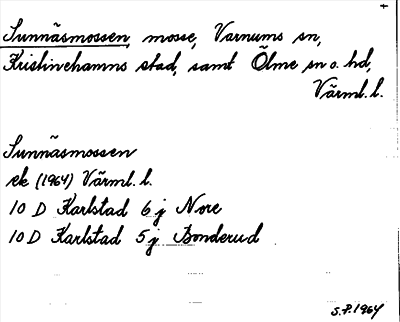 Sunnäsmossen, mosse, Varnums sn,
Kristinehamns stad, samt Ölme sn o. hd,
Värml. l.
Sunnäsmossen
ek (1964) Värml. l.
10 D Karlstad 6 j Nore
10 D Karlstad 5 j Bonderud
S.P. 1964